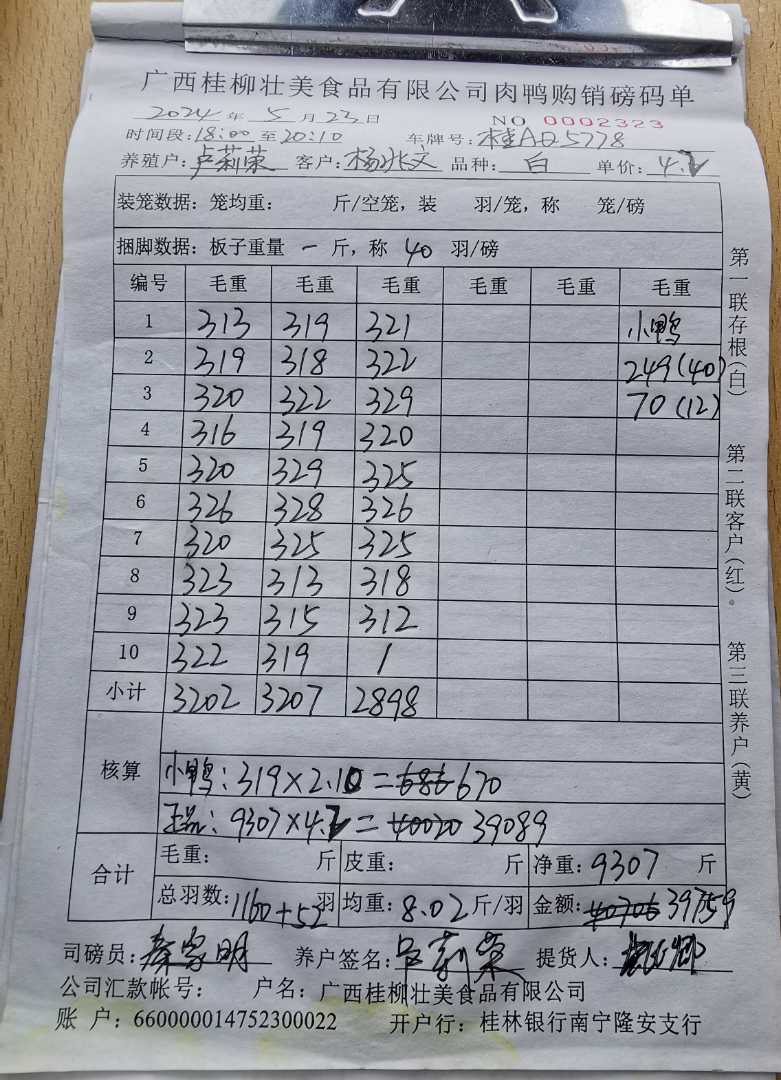 广西桂柳壮美食品有限公司肉鸭购销磅码单
2024 年 5 月 23 日 NO 0002323
时间段: 18:00 至 20:10 车牌号: 桂AQ5778
养殖户: 卢莉荣 客户: 杨兆文 品种: 白 单价: 4.2
装笼数据: 笼均重: 斤/空笼, 装 羽/笼, 称 笼/磅
捆脚数据: 板子重量 一 斤, 称 40 羽/磅
编号 毛重 毛重 毛重 毛重 毛重 毛重
1 313 319 321 小鸭
2 319 318 322 249(40)
3 320 322 329 70(12)
4 316 319 320
5 320 329 325
6 326 328 326
7 320 325 325
8 323 313 318
9 323 315 312
10 322 319 /
小计 3202 3207 2898
核算
小鸭: 319×2.10=686 670
正品: 9307×4.2=40020 39089
合计
毛重: 斤 皮重: 斤 净重: 9307 斤
总羽数: 1160+52 羽 均重: 8.02 斤/羽 金额: 40706 39759
司磅员: 秦家明 养户签名: 卢莉荣 提货人:
公司汇款帐号: 户名: 广西桂柳壮美食品有限公司
账 户: 660000014752300022 开户行: 桂林银行南宁隆安支行
第一联存根(白) 第二联客户(红)。 第三联养户(黄)